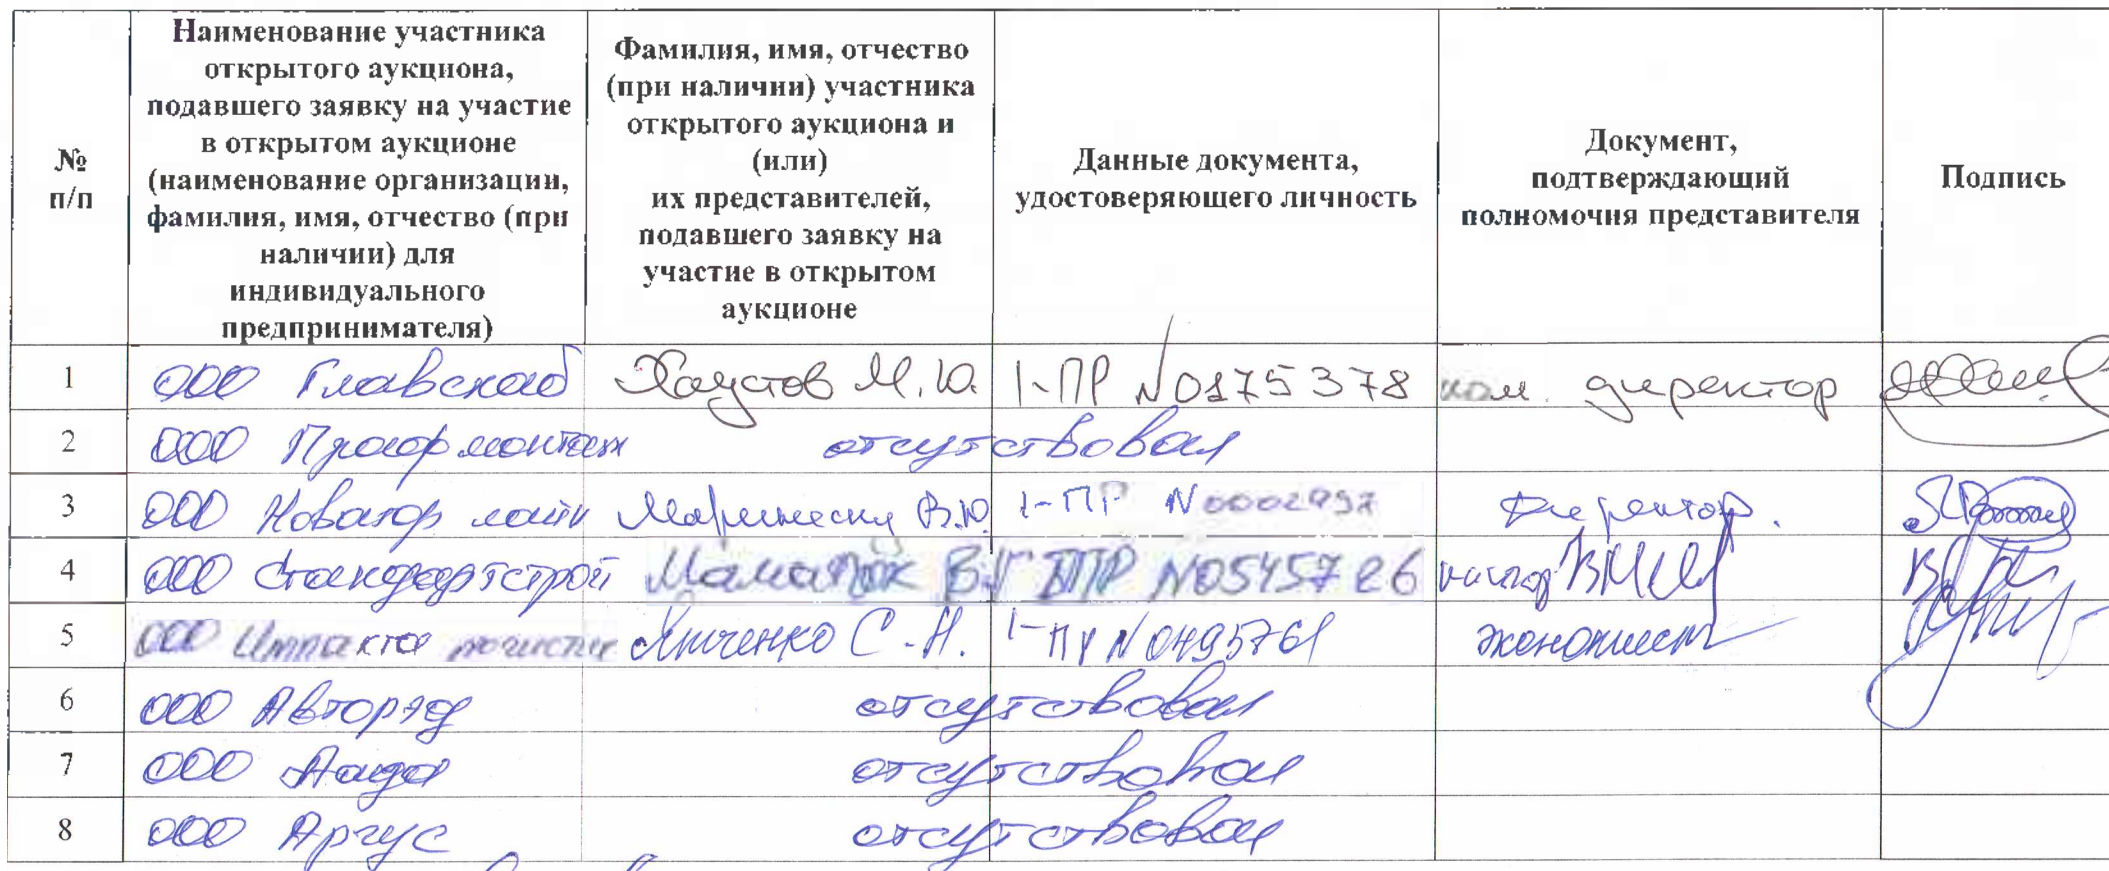 №
п/п
Наименование участника
открытого аукциона,
подавшего заявку на участие
в открытом аукционе
(наименование организации,
фамилия, имя, отчество (при
наличии) для
индивидуального
предпринимателя)
Фамилия, имя, отчество
(при наличии) участника
открытого аукциона и
(или)
их представителей,
подавшего заявку на
участие в открытом
аукционе
Данные документа,
удостоверяющего личность
Документ,
подтверждающий
полномочия представителя
Подпись
1 ООО Главснаб Хаустов М.Ю. 1-ПР №0175378 ком. директор
2 ООО отсутствовал
3 ООО Новатор В.Ю. 1-ПР N 0002937 Директор.
4 ООО Стандартстрой ПР N0545726
5 ООО Импакта С.Н. N 0495761 экономист
6 ООО Авторэд отсутствовал
7 ООО Аида отсутствовал
8 ООО Аргус отсутствовал